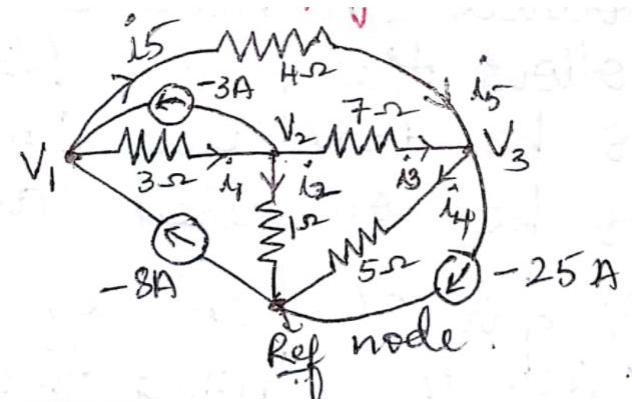 i5
4Ω
-3A
i5
7Ω
V2
V1
V3
3Ω
i1
i2
i3
i4
1Ω
5Ω
-8A
-25A
Ref node.